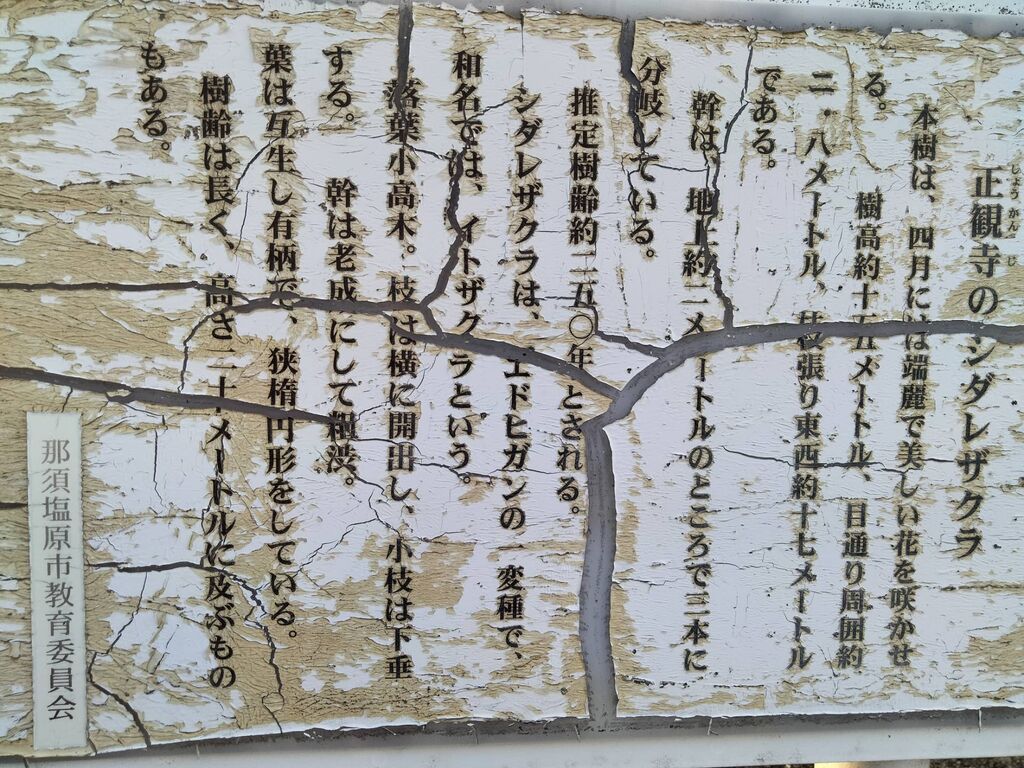 正観寺のシダレザクラ
しょうかんじ
本樹は、四月には端麗で美しい花を咲かせ
る。
樹高約十五メートル、目通り周囲約
二・八メートル、枝張り東西約十七メートル
である。
幹は、地上約二メートルのところで三本に
分岐している。
推定樹齢約二五〇年とされる。
シダレザクラは、エドヒガンの一変種で、
和名では、イトザクラという。
落葉小高木。枝は横に開出し、小枝は下垂
する。 幹は老成にして粗渋。
葉は互生し有柄で、狭楕円形をしている。
樹齢は長く、高さ二十メートルに及ぶもの
もある。
那須塩原市教育委員会